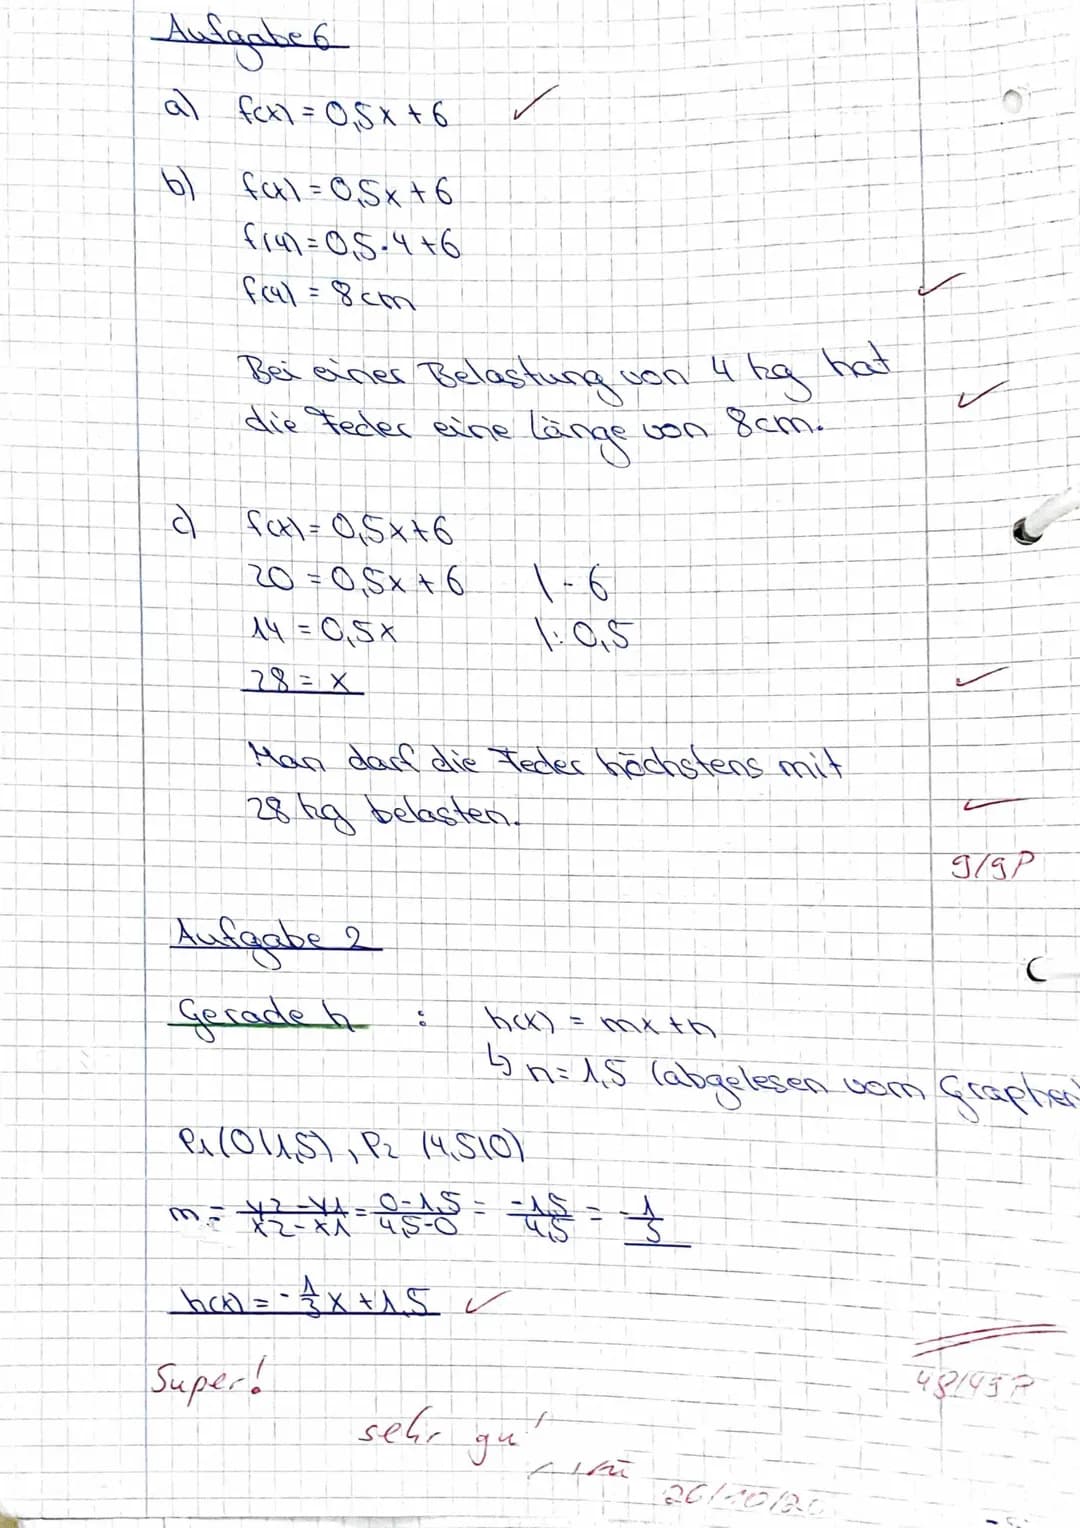 Aufgabe 6
a) f(x) = 0,5x + 6 ✓
b) f(x) = 0,5x + 6
f(4) = 0,5·4 + 6
f(4) = 8cm ✓
Bei einer Belastung von 4 kg hat
die Feder eine Länge von 8cm. ✓
c) f(x) = 0,5x + 6
20 = 0,5x + 6 | - 6
14 = 0,5x | : 0,5
28 = x ✓
Man darf die Feder höchstens mit
28 kg belasten. ✓
9/9P
Aufgabe 2
Gerade h : h(x) = mx + n
↳ n = 1,5 (abgelesen vom Graphen
P1(0|1,5), P2 (4,5|0)
m = y2-y1/x2-x1 = 0-1,5/4,5-0 = -1,5/4,5 = -1/3
h(x) = -1/3 x + 1,5 ✓
Super!
48/49P
sehr gut